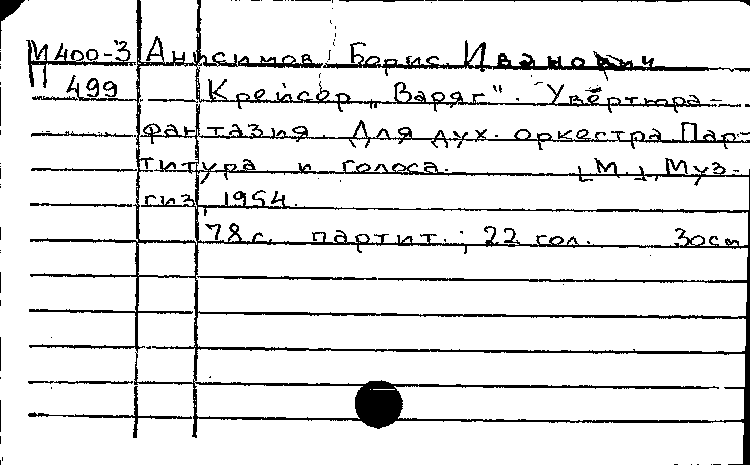 М400-3 Анисимов, Борис Иванович
499 Крейсер „Варяг". Увертюра-
фантазия. Для дух. оркестра Пар-
титура и голоса. [М.], Муз-
гиз, 1954.
78 с. партит.; 22 гол. 30см